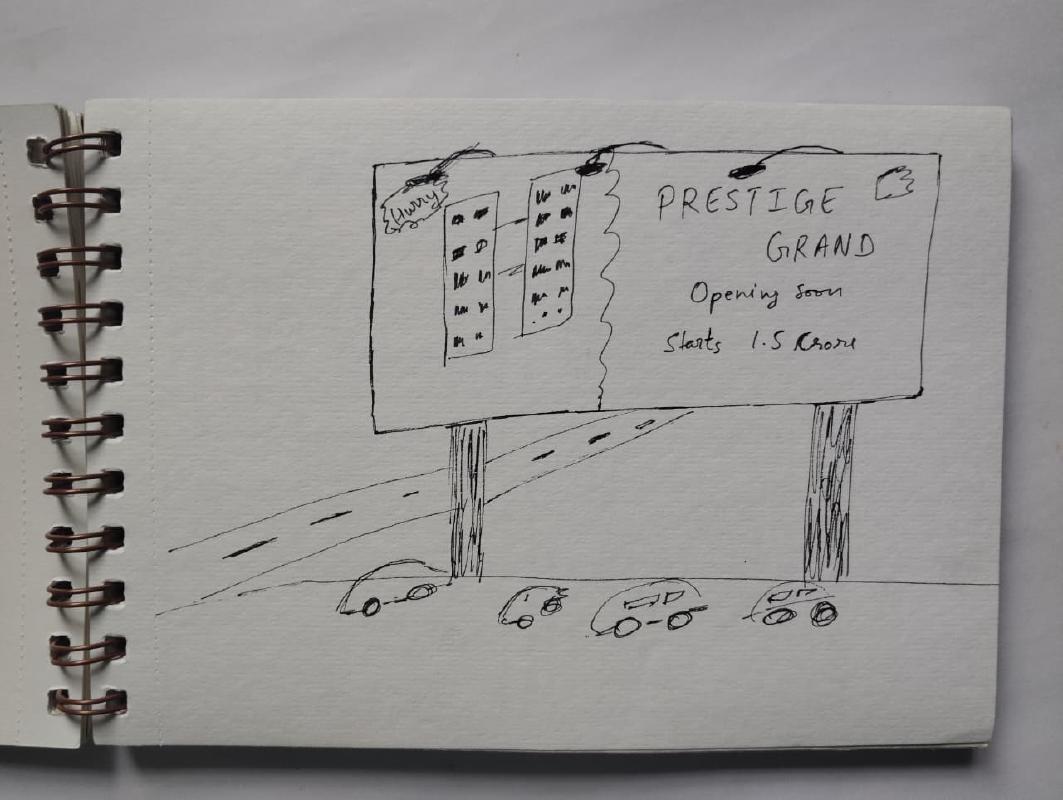 Hurry
PRESTIGE
GRAND
Opening soon
Starts 1.5 Crore